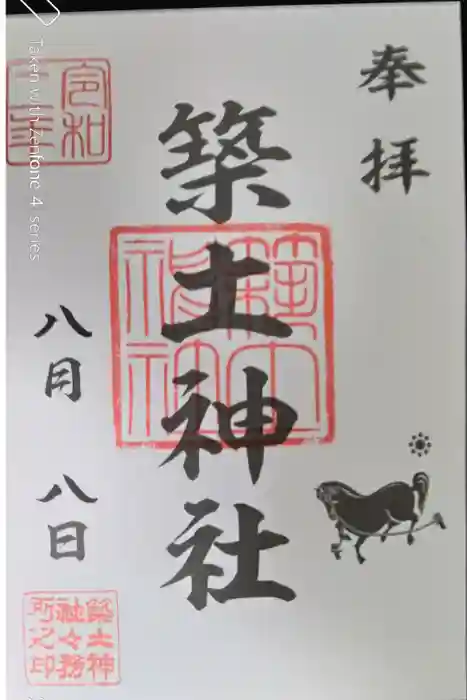 奉拝
築土神社
令和
三年
八月八日
築土神
社々務
所之印
Taken with Zenfone 4 series